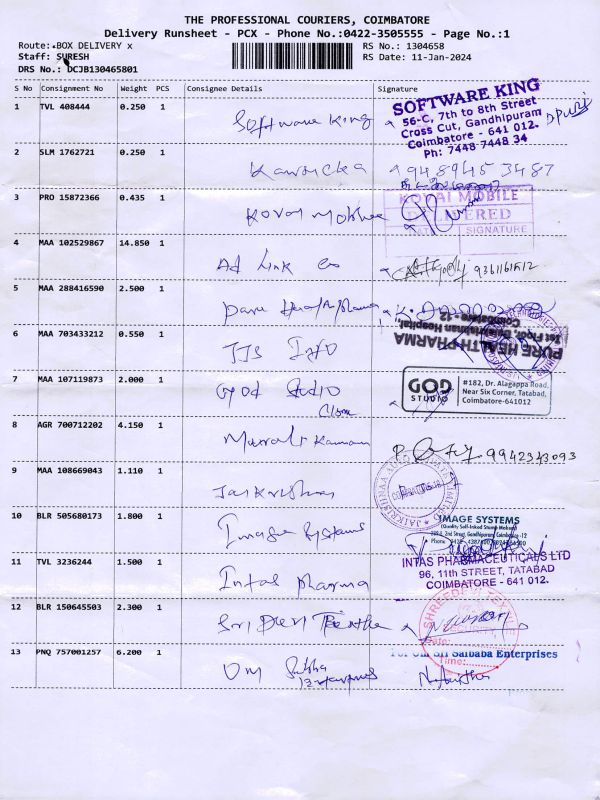 THE PROFESSIONAL COURIERS, COIMBATORE
Delivery Runsheet - PCX - Phone No.:0422-3505555 - Page No.:1
Route: BOX DELIVERY x
RS No.: 1304658
Staff: SURESH
RS Date: 11-Jan-2024
DRS No.: DCJB130465801
S No Consignment No Weight PCS Consignee Details Signature
1 TVL 408444 0.250 1 Software King
SOFTWARE KING
56-C, 7th to 8th Street
Cross Cut, Gandhipuram
Coimbatore - 641 012.
Ph: 7448 7448 34
2 SLM 1762721 0.250 1
9489453487
3 PRO 15872366 0.435 1 Kovai Mobile
KOVAI MOBILE
DELIVERED
DATE SIGNATURE
4 MAA 102529867 14.850 1 Ad Link
5 MAA 288416590 2.500 1
PURE HEALTH PHARMA
1st Floor, Balakrishnan Hospital,
Coimbatore - 12
6 MAA 703433212 0.550 1 TTS Info
7 MAA 107119873 2.000 1 God Studio
GOD STUDIO
#182, Dr. Alagappa Road,
Near Six Corner, Tatabad,
Coimbatore-641012
8 AGR 700712202 4.150 1 Murali Kannan
9942343093
9 MAA 108669043 1.110 1 Jaikrishnaa
10 BLR 505680173 1.800 1 Image Systems
IMAGE SYSTEMS
11 TVL 3236244 1.500 1 Intas pharma
INTAS PHARMACEUTICALS LTD
96, 11th STREET, TATABAD
COIMBATORE - 641 012.
12 BLR 150645503 2.300 1 Sri Devi
SHREEDEVI TEXTILE
Date:
Time:
13 PNQ 757001257 6.200 1 Om
For Om Sri Saibaba Enterprises